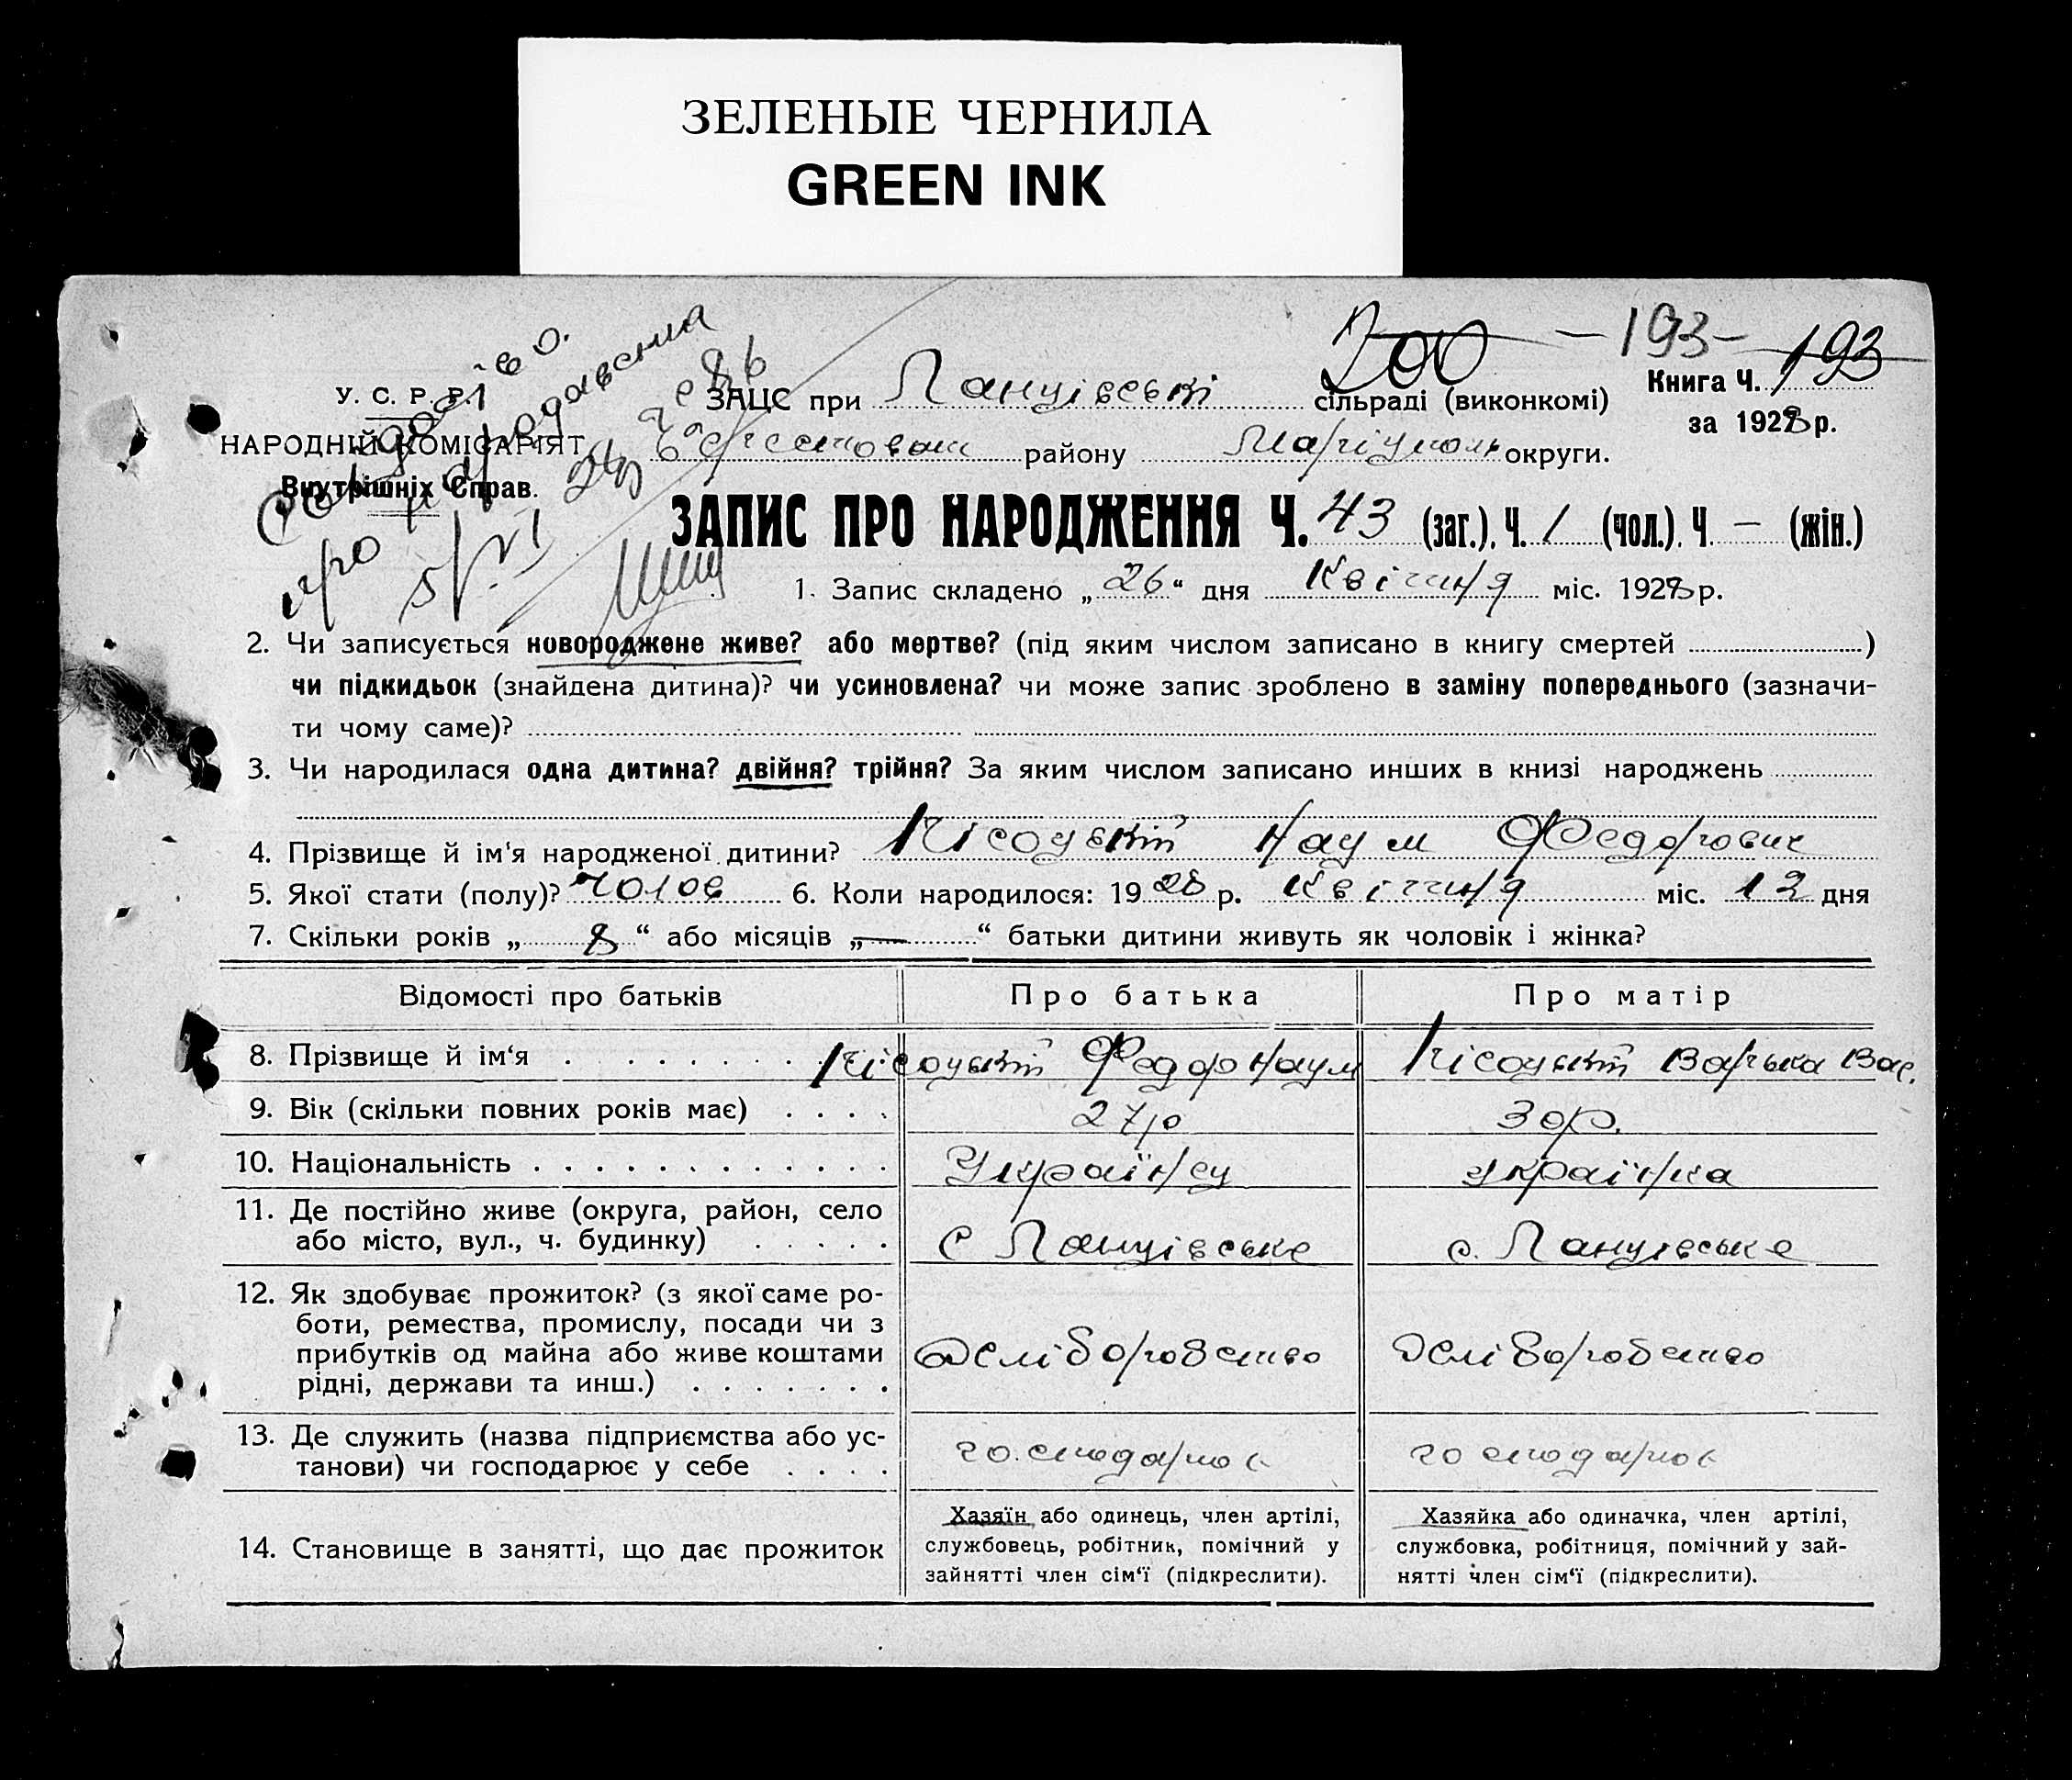 ЗЕЛЕНЫЕ ЧЕРНИЛА
GREEN INK
200 — 193 — 193
У. С. Р. Р.
НАРОДНІЙ КОМІСАРІЯТ
Внутрішніх Справ.
про
5/VI
ЗАЦС при Ланцівські сільраді (виконкомі)
Книга Ч. 193
за 1928 р.
району Маріуполь округи.
ЗАПИС ПРО НАРОДЖЕННЯ Ч. 43 (заг.). Ч. 1 (чол.). Ч. — (жін.)
1. Запис складено „26“ дня Квітня міс. 1928 р.
2. Чи записується новороджене живе? або мертве? (під яким числом записано в книгу смертей )
чи підкидьок (знайдена дитина)? чи усиновлена? чи може запис зроблено в заміну попереднього (зазначи-
ти чому саме)?
3. Чи народилася одна дитина? двійня? трійня? За яким числом записано инших в книзі народжень
4. Прізвище й ім'я народженої дитини? Наум Федорович
5. Якої стати (полу)? чолов 6. Коли народилося: 1928 р. Квітня міс. 12 дня
7. Скільки років „ 8 “ або місяців „ — “ батьки дитини живуть як чоловік і жінка?
Відомості про батьків Про батька Про матір
8. Прізвище й ім'я . . . . . . . . Федор Наум Варька Вас.
9. Вік (скільки повних років має) . . . . 27р 30р.
10. Національність . . . . . . . . . . . . Українец українка
11. Де постійно живе (округа, район, село
або місто, вул., ч. будинку) . . . . . с Ланцівське с. Ланцівське
12. Як здобуває прожиток? (з якої саме ро-
боти, ремества, промислу, посади чи з
прибутків од майна або живе коштами
рідні, держави та инш.) . . . . . . . хліборобство хліборобство
13. Де служить (назва підприємства або ус-
танови) чи господарює у себе . . . .
14. Становище в занятті, що дає прожиток
Хазяїн або одинець, член артілі,
службовець, робітник, помічний у
зайнятті член сім'ї (підкреслити).
Хазяйка або одиначка, член артілі,
службовка, робітниця, помічний у зай-
нятті член сім'ї (підкреслити).